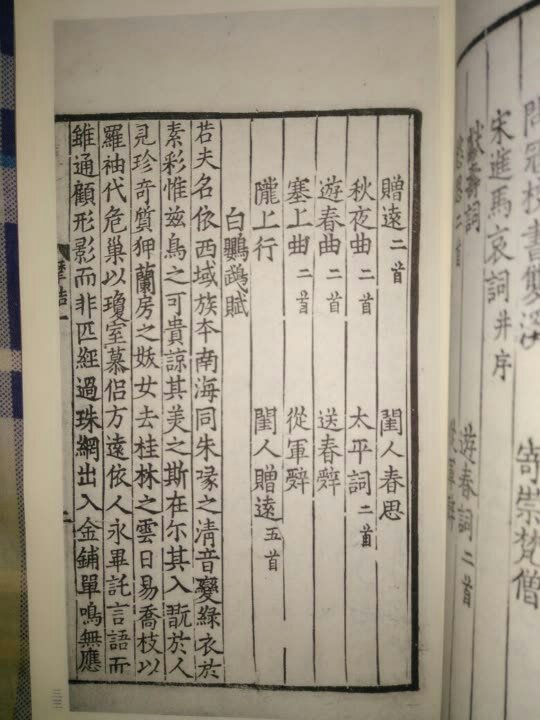 寇校書雙溪 寄崇梵僧
宋進馬哀詞 并序
獻壽詞 遊春詞 二首
思二首
贈遠 二首 閨人春思
秋夜曲 二首 太平詞 二首
遊春曲 二首 送春辭
塞上曲 二首 從軍辭
隴上行 閨人贈遠 五首
白鸚鵡賦
若夫名依西域族夲南海同朱喙之清音變綠衣於
素彩惟兹鳥之可貴諒其美之斯在尓其入翫於人
見珍奇質狎蘭房之妖女去桂林之雲日易喬枝以
羅袖代危巢以瓊室慕侣方遠依人永畢託言語而
雖通顧形影而非匹經過珠網出入金鋪單鳴無應
摩詰一
二
三三